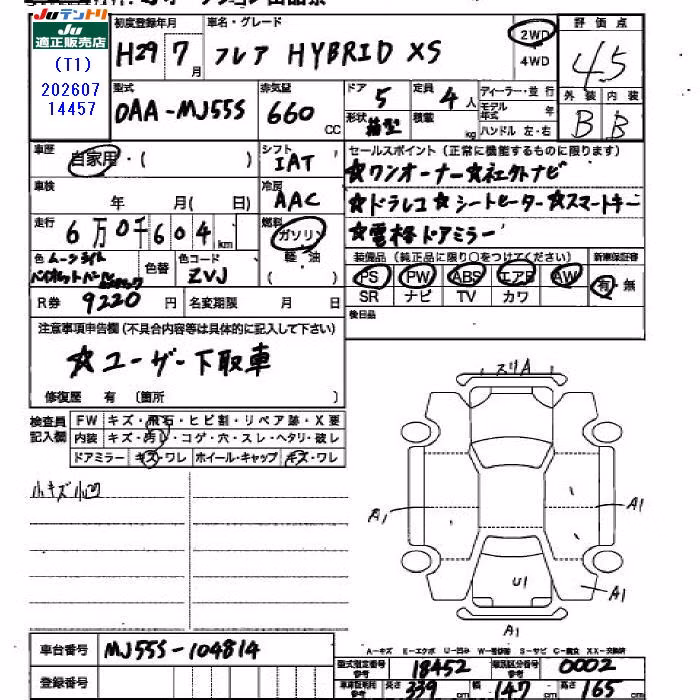 Juテントリ
Ju
適正販売店
(T1)
202607
14457
初度登録年月
H29 7月
車名・グレード
フレア HYBRID XS
2WD
4WD
評価点
4.5
外装 内装
B B
型式
DAA-MJ55S
排気量
660 CC
ドア
5
定員
4人
形状 箱型
積載 kg
ディーラー・並行
モデル年式 年
ハンドル 左・右
車歴
自家用・( )
シフト
IAT
セールスポイント(正常に機能するものに限ります)
☆ワンオーナー☆社外ナビ
☆ドラレコ☆シートヒーター☆スマートキー
☆電格ドアミラー
車検
年 月( 日)
冷房
AAC
走行
6万0千604km
燃料
ガソリン
軽・油
( )
色 ムーンライト
バイオレットパール
色替
色コード
ZVJ
装備品(純正品に限り○をつけてください)
新車保証書
PS PW ABS エアB AW 有・無
SR ナビ TV カワ
R券 9220円
名変期限 月 日
検日品
注意事項申告欄(不具合内容等は具体的に記入して下さい)
☆ユーザー下取車
修復歴 有 〔箇所 〕
検査員記入欄
FW キズ・飛石・ヒビ割・リペア跡・X要
内装 キズ・汚レ・コゲ・穴・スレ・ヘタリ・破レ
ドアミラー キズ・ワレ ホイール・キャップ キズ・ワレ
小キズ小凹
スリA
A1
A1
U1
A1
A1
車台番号 MJ55S-104814
登録番号
A－キズ E－エクボ U－凹み W－補修跡 S－サビ C－腐食 XX－交換済
型式指定番号 18452 類別区分番号 0002
長さ 339cm 幅 147cm 高さ 165cm